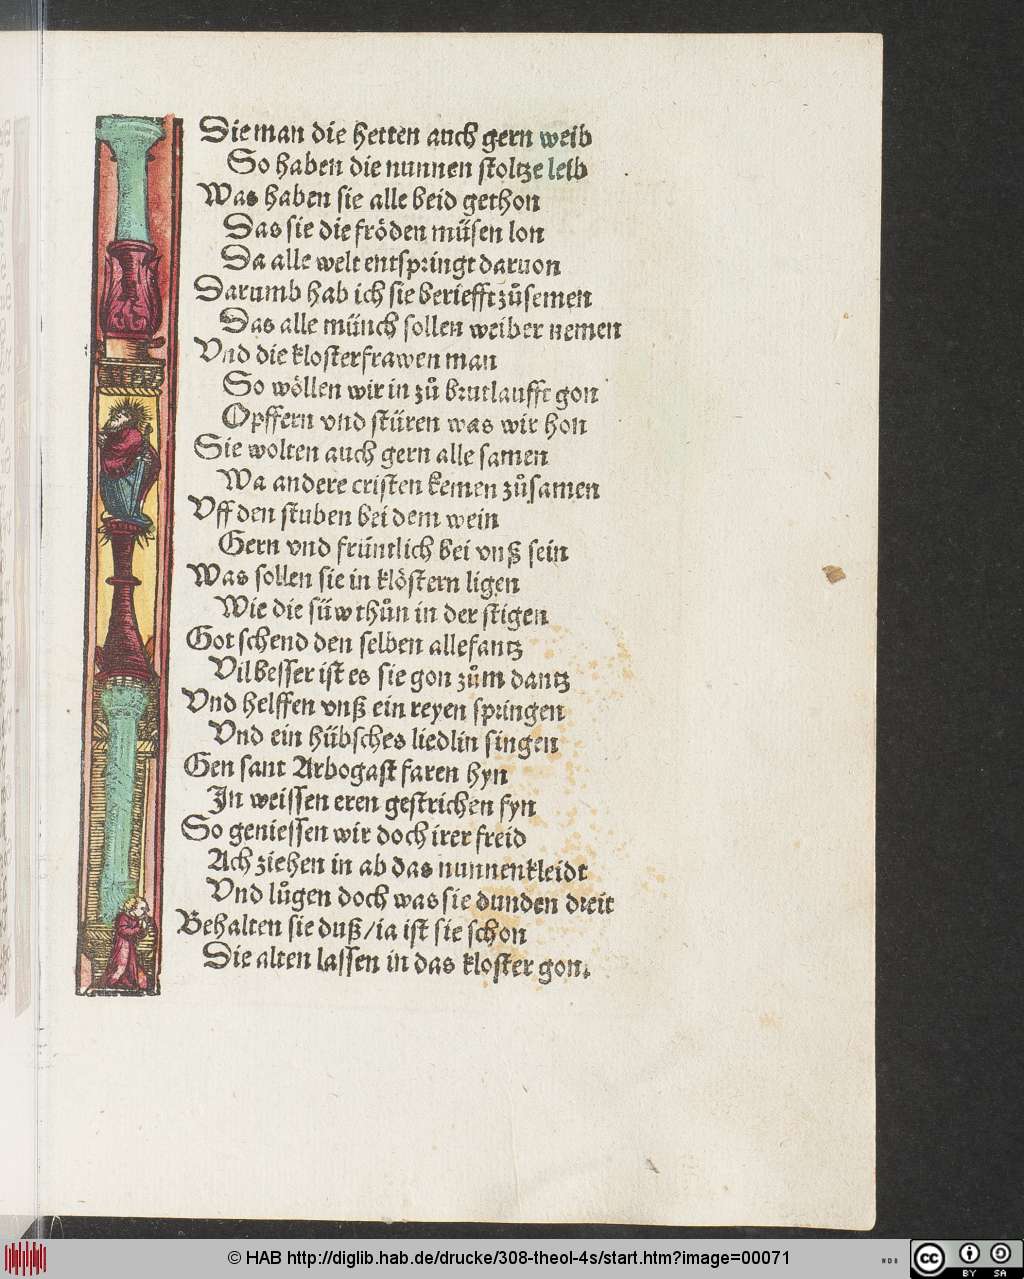 Die man die hetten auch gern weib
So haben die nunnen stoltze leib
Was haben sie alle beid gethon
Das sie die fröden müsen lon
Da alle welt entspringt daruon
Darumb hab ich sie beriefft zůsemen
Das alle münch sollen weiber nemen
Vnd die klosterfrawen man
So wöllen wir in zů brutlaufft gon
Opffern vnd stüren was wir hon
Sie wolten auch gern alle samen
Wa andere cristen kemen zůsamen
Vff den stuben bei dem wein
Gern vnd früntlich bei vnß sein
Was sollen sie in klöstern ligen
Wie die süw thůn in der stigen
Got schend den selben allefantz
Vil besser ist es sie gon zům dantz
Vnd helffen vnß ein reyen springen
Vnd ein hübsches liedlin singen
Gen sant Arbogast faren hyn
In weissen eren gestrichen fyn
So geniessen wir doch irer freid
Ach ziehen in ab das nunnenkleidt
Vnd lůgen doch was sie dunden dreit
Behalten sie duß/ia ist sie schon
Die alten lassen in das kloster gon.
© HAB http://diglib.hab.de/drucke/308-theol-4s/start.htm?image=00071
WDB
cc BY SA